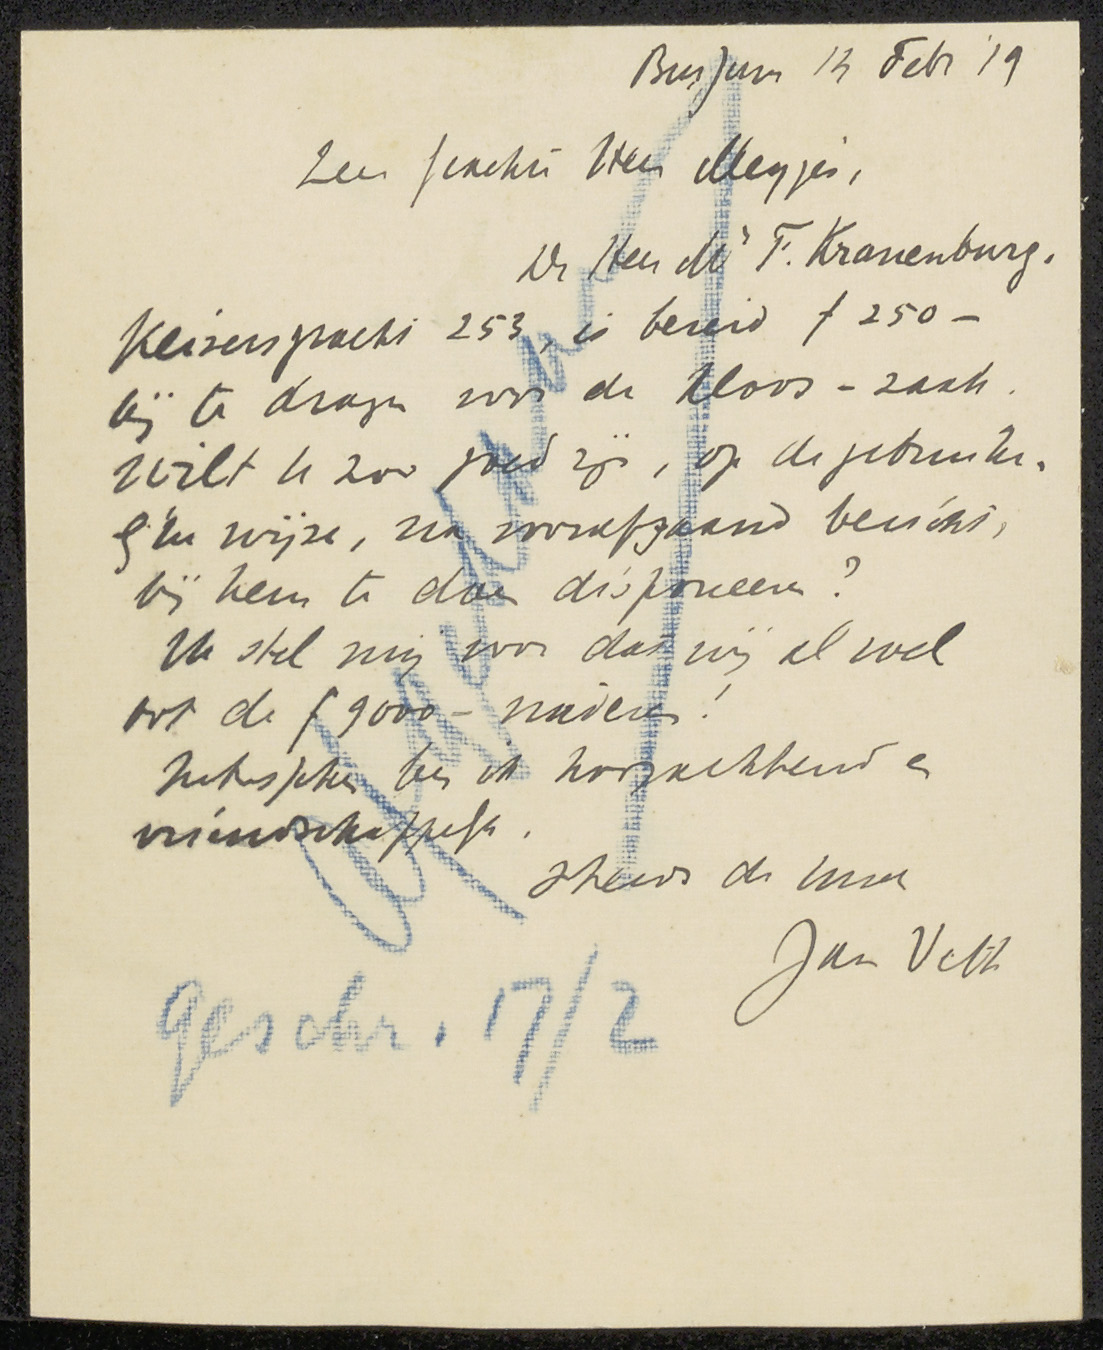 Bussum 13 Febr '19
Zeer geachte Heer Meyjes,
De Heer Mr F. Kranenburg,
Keizersgracht 253, is bereid f 250 –
bij te dragen voor de Kloos-zaak.
Wilt U zoo goed zijn, op de gebruike-
lijke wijze, na voorafgaand bericht,
bij hem te doen disponeeren?
Ik stel mij voor dat wij al wel
tot de f 9000 – naderen!
Intusschen ben ik hoogachtend en
vriendschappelijk.
Steeds de Uwe
Jan Veth
geschr. 17/2